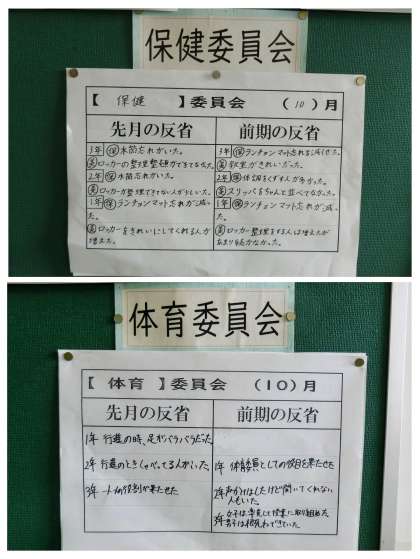 保健委員会
【 保健 】委員会 （10）月
先月の反省
3年 保 水筒忘れがいた。
美 ロッカーの整理整頓ができてなかった。
2年 保 水筒忘れがいた。
美 ロッカーが整理できてない人が少しいた。
1年 保 ランチョンマット忘れが減った。
美 ロッカーをきれいにしてくれる人が
増えた。
前期の反省
3年 保 ランチョンマット忘れを減らせた。
美 教室がきれいだった。
2年 保 体調をくずす人が多かった。
美 スリッパをちゃんと並べてなかった。
1年 保 ランチョンマット忘れが減っ
た。
美 ロッカー整理をする人は増えたが
あまり続かなかった。
体育委員会
【 体育 】委員会 （10）月
先月の反省
1年 行進の時、足がバラバラだった
2年 行進のときしゃべってる人がいた。
3年 役割が果たせた
前期の反省
1年 体育委員としての役目を果たせた
2年 声かけはしたけど聞いてくれない
人もいた。
3年 女子は率先して授業に取り組めた。
男子は できていた。